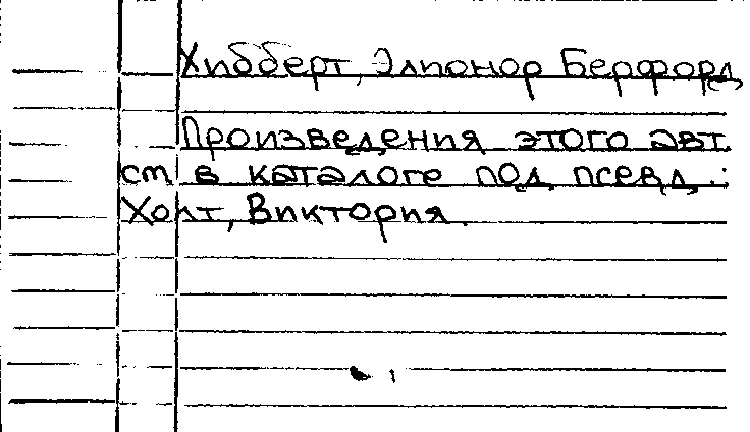 Хибберт, Элионор Берфорд
Произведения этого авт.
см. в каталоге под псевд.:
Холт, Виктория.